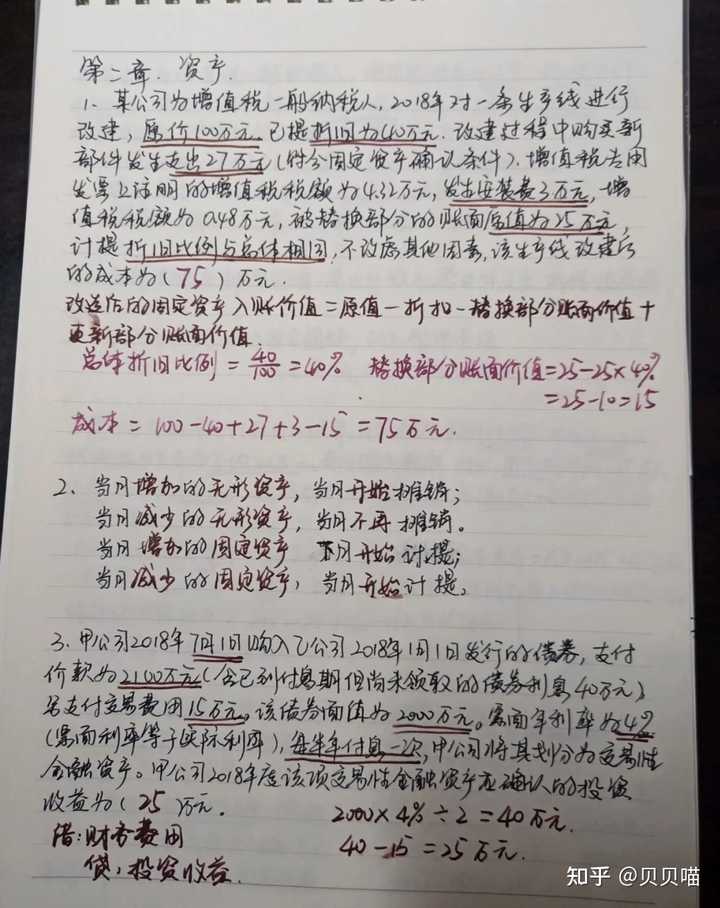 第二章. 资产.
1. 某公司为增值税一般纳税人, 2018年对一条生产线进行
改建, 原价100万元, 已提折旧为40万元. 改建过程中购买新
部件发生支出27万元(符合固定资产确认条件). 增值税专用
发票上注明的增值税税额为4.32万元, 发生安装费3万元, 增
值税税额为0.48万元, 被替换部分的账面原值为25万元,
计提折旧比例与总体相同, 不考虑其他因素, 该生产线改建后
的成本为(75)万元.
改造后的固定资产入账价值=原值-折扣-替换部分账面价值+
更新部分账面价值.
总体折旧比例=40/100=40% 替换部分账面价值=25-25×40%
=25-10=15
成本=100-40+27+3-15=75万元.
2、当月增加的无形资产, 当月开始摊销;
当月减少的无形资产, 当月不再摊销。
当月增加的固定资产 下月开始计提;
当月减少的固定资产, 当月开始计提,
3. 甲公司2018年7月1日购入乙公司2018年1月1日发行的债券, 支付
价款为2100万元(含已到付息期但尚未领取的债券利息40万元)
另支付交易费用15万元。该债券面值为2000万元。票面年利率为4%
(票面利率等于实际利率), 每半年付息一次, 甲公司将其划分为交易性
金融资产。甲公司2018年度该项交易性金融资产应确认的投资
收益为(25)万元.
2000×4%÷2=40万元.
借:财务费用
40-15=25万元.
贷:投资收益.
知乎 @贝贝喵